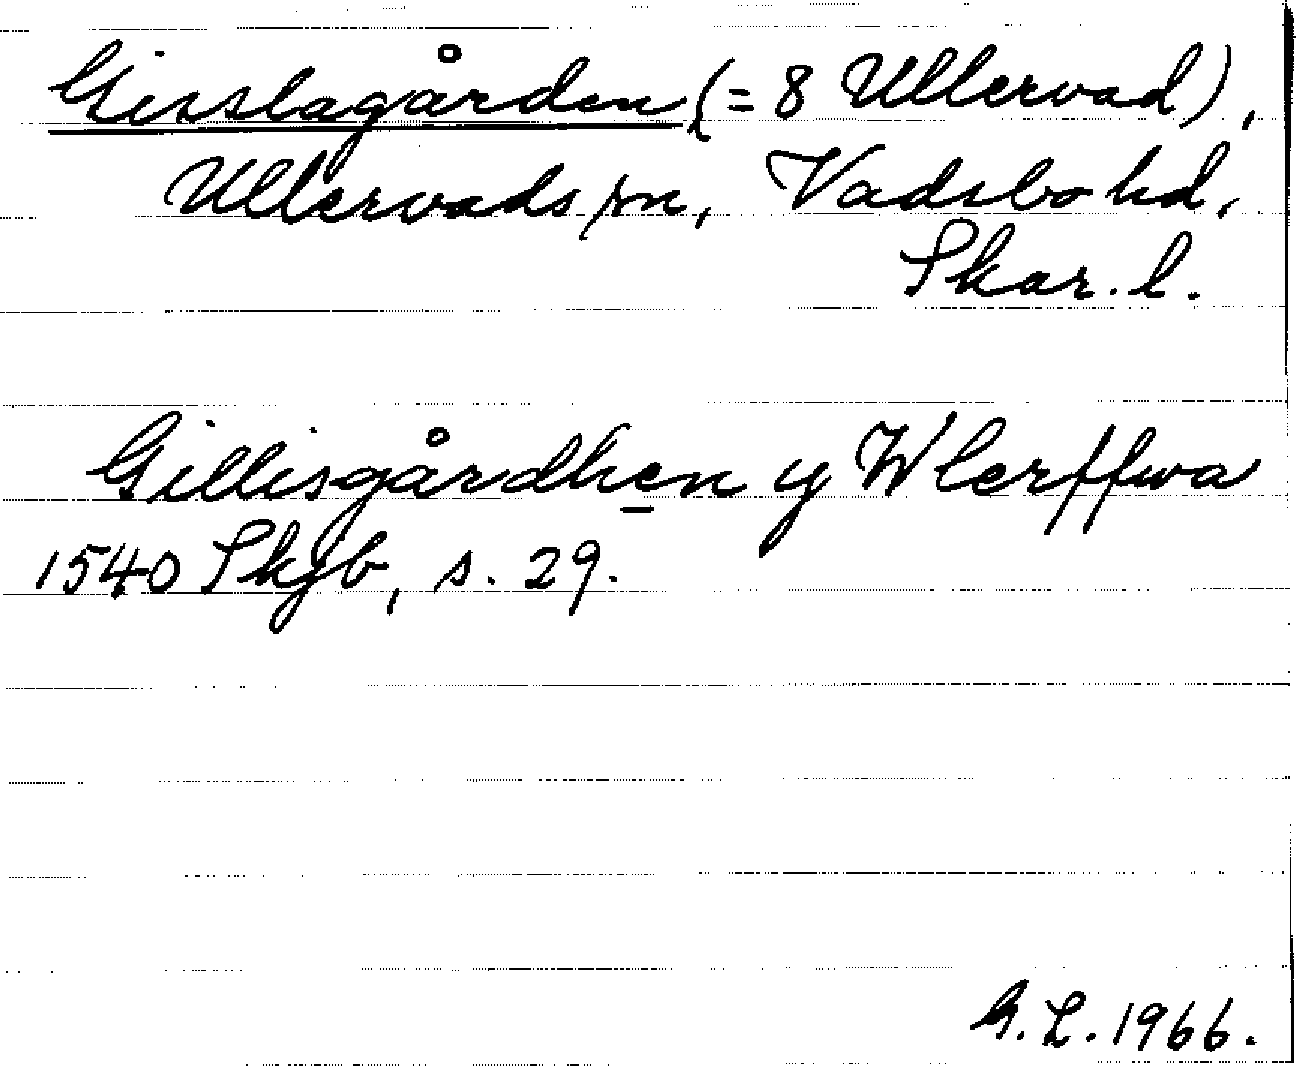 Gisslagården (= 8 Ullervad),
Ullervads sn, Vadsbo hd,
Skar. l.
Gillisgårdhen y Wlerffwa
1540 Skjb, s. 29.
G.L. 1966.